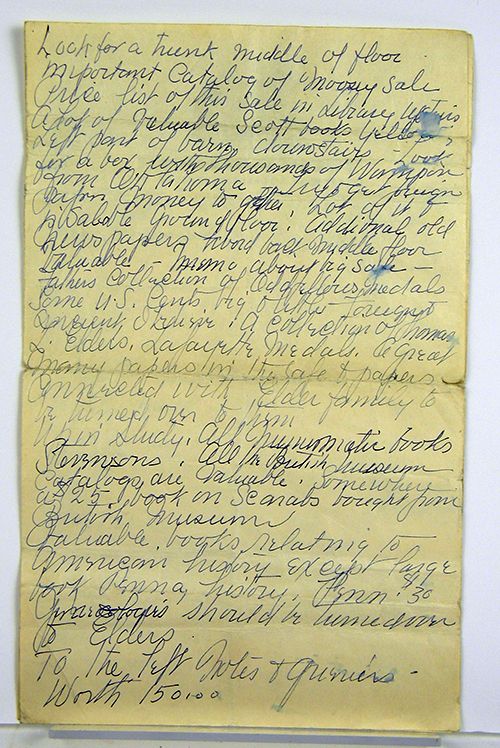 Look for a trunk middle of floor
important Catalog of Mooney Sale
Price list of this Sale in Library Upstairs
A lot of Valuable Scott books Yellow
Left part of barn downstairs - Look
for a box with thousands of Wampum
from Oklahoma
paper money to gather. Lot of it
Probable ground floor. Additional old
newspapers toward back middle floor
Valuable - memo about big safe -
Fathers Collection of Medals
Some U.S. Cents big
Ancient I believe. A Collection of Thomas
L. Elders. Lafayette Medals. A Great
many papers in the safe & papers
Connected with Elder family to
be turned over to them
in study. All Numismatic books
Stevensons. All the British Museum
Catalogs are Valuable. Somewhere
a $25. book on Scarabs bought from
British Museum
Valuable books relating to
American history except large
book Penna history. Penn. $30
should be turned over
to Elders
To the left Notes &
Worth 150.00